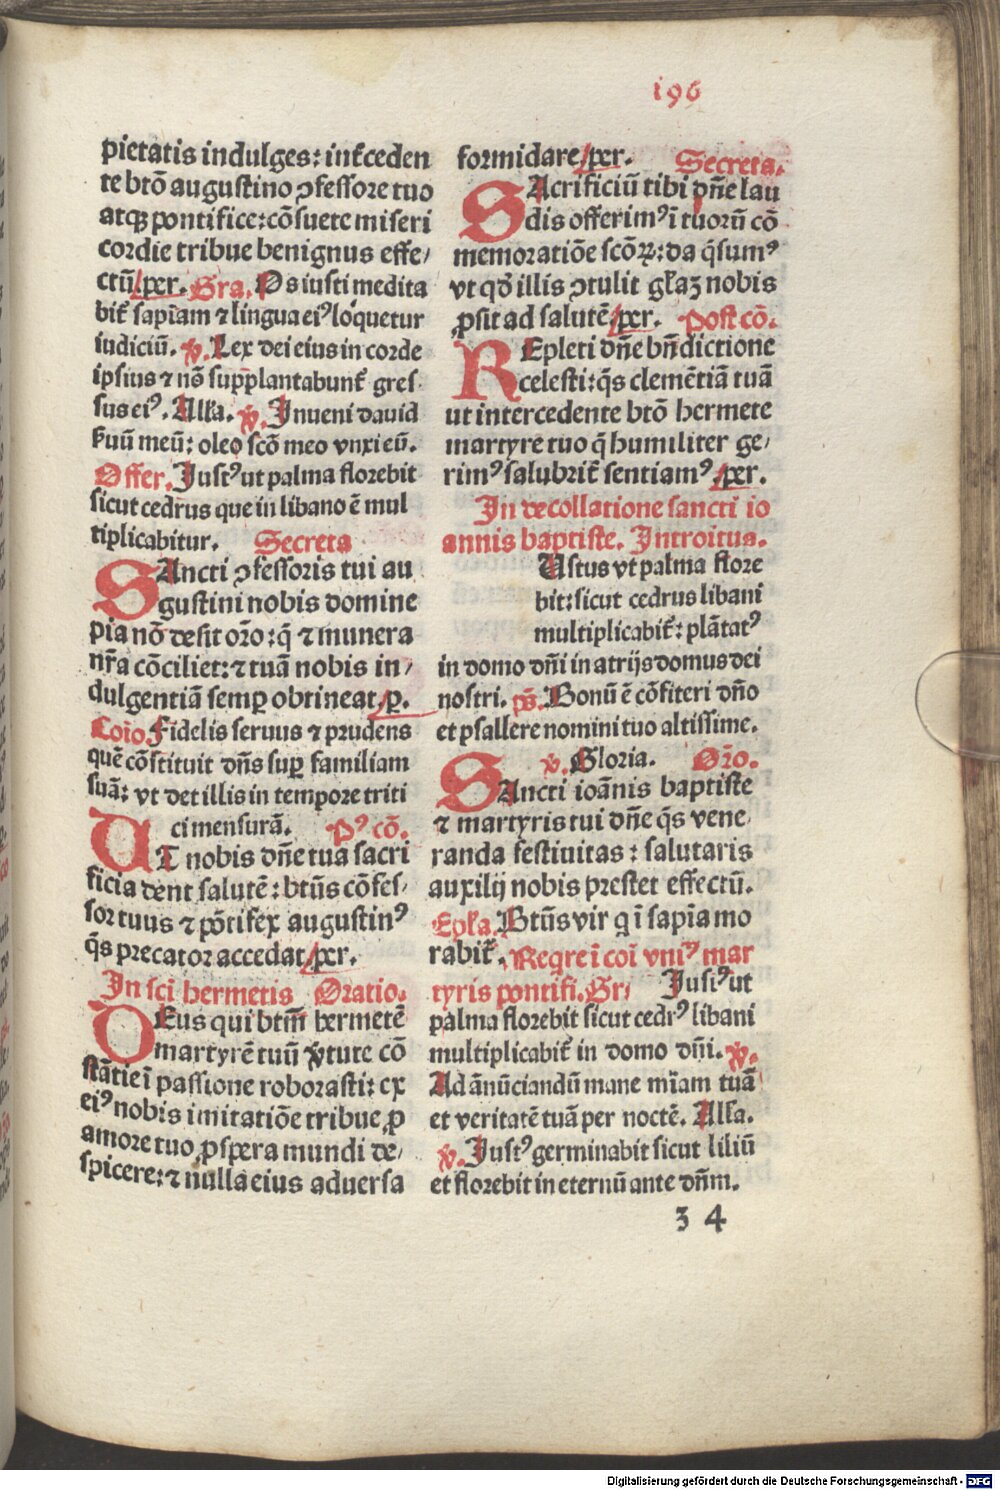 196
pietatis indulges: int̃ceden
te btõ augustino ꝯfessore tuo
atqꝫ pontifice: cõsuete miseri
cordie tribue benignus effe/
ctũ/ꝑer. Gra. Os iusti medita
bit̃ sapĩam ⁊ lingua ei⁹ loquetur
iudiciũ. ℣. Lex dei eius in corde
ipsius ⁊ nõ supplantabunt̃ gres
sus ei⁹. Alľa. ℣. Inueni dauid
ẜuũ meũ: oleo scõ meo vnxi eũ.
Offer. Just⁹ ut palma florebit
sicut cedrus que in libano ẽ mul
tiplicabitur. Secreta
SAncti ꝯfessoris tui au
gustini nobis domine
pia nõ desit orõ: q̃ ⁊ munera
nr̃a cõciliet: ⁊ tuã nobis in/
dulgentiã semꝑ obtineat. ꝑ.
Coĩo. Fidelis seruus ⁊ prudens
quẽ cõstituit dñs suꝑ familiam
suã: vt det illis in tempore triti
ci mensurã. P⁹ cõ.
UT nobis dñe tua sacri
ficia dent salutẽ: btũs cõfes/
sor tuus ⁊ põtifex augustin⁹
q̃s precator accedat/ꝑer.
In sci hermetis Oratio.
DEus qui btm̃ hermetẽ
martyrẽ tuũ v̾tute cõ
stãtie ĩ passione roborasti: ex
ei⁹ nobis imitatiõe tribue ꝓ
amore tuo ꝓspera mundi de/
spicere: ⁊ nulla eius aduersa
formidare/ꝑer. Secreta.
SAcrificiũ tibi dñe lau
dis offerim⁹ ĩ tuorũ cõ
memoratiõe scõꝝ: da q̃sum⁹
vt qđ illis ꝯtulit gľiaꝫ nobis
ꝓsit ad salutẽ/ꝑer. Post cõ.
REpleti dñe bñdictione
celesti: q̃s clemẽtiã tuã
ut intercedente btõ hermete
martyre tuo q̃ humiliter ge/
rim⁹ salubrit̃ sentiam⁹. ꝑer.
In decollatione sancti io
annis baptiste. Introitus.
Ustus vt palma flore
bit: sicut cedrus libani
multiplicabit̃: plãtat⁹
in domo dñi in atrijs domus dei
nostri. ps̃. Bonũ ẽ cõfiteri dño
et psallere nomini tuo altissime.
℣. Gloria. Orõ.
SAncti ioãnis baptiste
⁊ martyris tui dñe q̃s vene
randa festiuitas: salutaris
auxilij nobis prestet effectũ.
Epľa. Btũs vir q ĩ sapĩa mo
rabit̃. Reqre ĩ coĩ vni⁹ mar
tyris pontifi. Gr/ Just⁹ ut
palma florebit sicut cedr⁹ libani
multiplicabit̃ in domo dñi. ℣.
Ad ãnũciandũ mane mĩam tuã
et veritatẽ tuã per noctẽ. Alľa.
℣. Just⁹ germinabit sicut liliũ
et florebit in eternũ ante dñm.
34
Digitalisierung gefördert durch die Deutsche Forschungsgemeinschaft - DFG